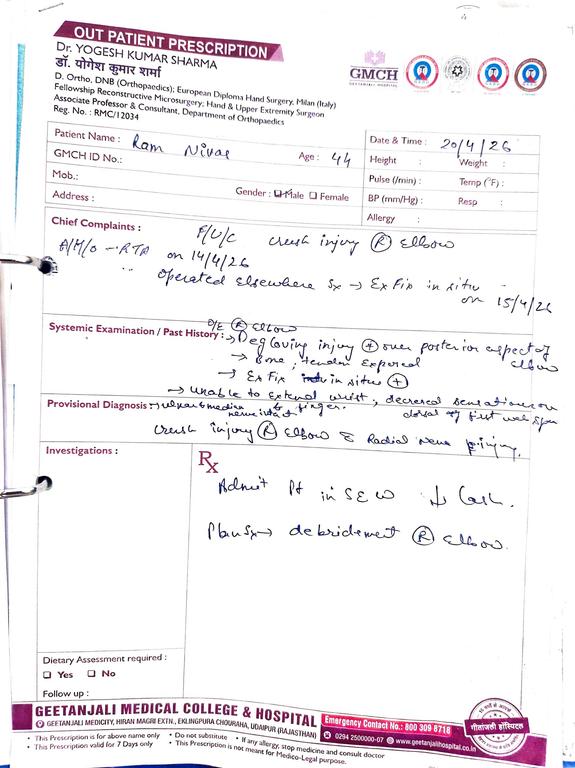 OUT PATIENT PRESCRIPTION
Dr. YOGESH KUMAR SHARMA
डॉ. योगेश कुमार शर्मा
D. Ortho, DNB (Orthopaedics); European Diploma Hand Surgery, Milan (Italy)
Fellowship Reconstructive Microsurgery; Hand & Upper Extremity Surgeon
Associate Professor & Consultant, Department of Orthopaedics
Reg. No. : RMC/12034
GMCH
GEETANJALI HOSPITAL
Patient Name : Ram Nivas Age : 44
GMCH ID No.:
Mob.:
Gender : Male Female
Address :
Date & Time : 20/4/26
Height : Weight :
Pulse (/min) : Temp (°F) :
BP (mm/Hg) : Resp :
Allergy :
Chief Complaints : F/U/C crush injury (R) Elbow
A/H/O → RTA on 14/4/26
operated elsewhere Sx → Ex Fix in situ on 15/4/26
Systemic Examination / Past History : O/E (R) Elbow
→ Degloving injury (+) over posterior aspect of elbow
→ Bone, tendon exposed
→ Ex Fix in situ (+)
→ Unable to extend wrist, finger, decreased sensation on dorsal of first web
Provisional Diagnosis :
crush injury (R) Elbow & Radial Nerve injury.
Investigations :
Rx
Admit Pt in SEW Cash.
Plan Sx → debridement (R) Elbow.
Dietary Assessment required :
Yes No
Follow up :
GEETANJALI MEDICAL COLLEGE & HOSPITAL
GEETANJALI MEDICITY, HIRAN MAGRI EXTN., EKLINGPURA CHOURAHA, UDAIPUR (RAJASTHAN)
Emergency Contact No.: 800 309 8718
0294 2500000-07 www.geetanjalihospital.co.in
गीतांजली हॉस्पिटल
• This Prescription is for above name only • Do not substitute • If any allergy, stop medicine and consult doctor
• This Prescription valid for 7 Days only • This Prescription is not meant for Medico-Legal purpose.